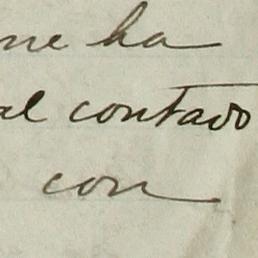 me ha
al contado
con